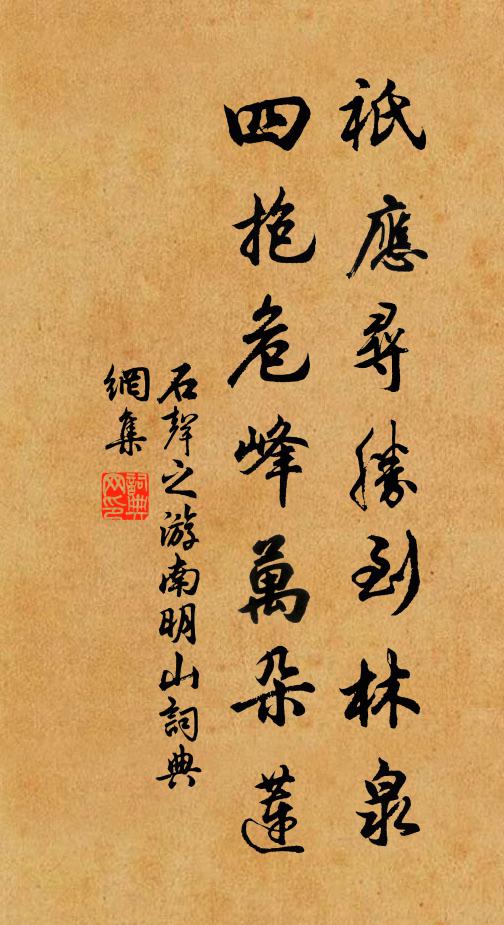 祇應尋勝到林泉
四抱危峰萬朵蓮
石聲之游南明山詞典
網集
詞典
网印